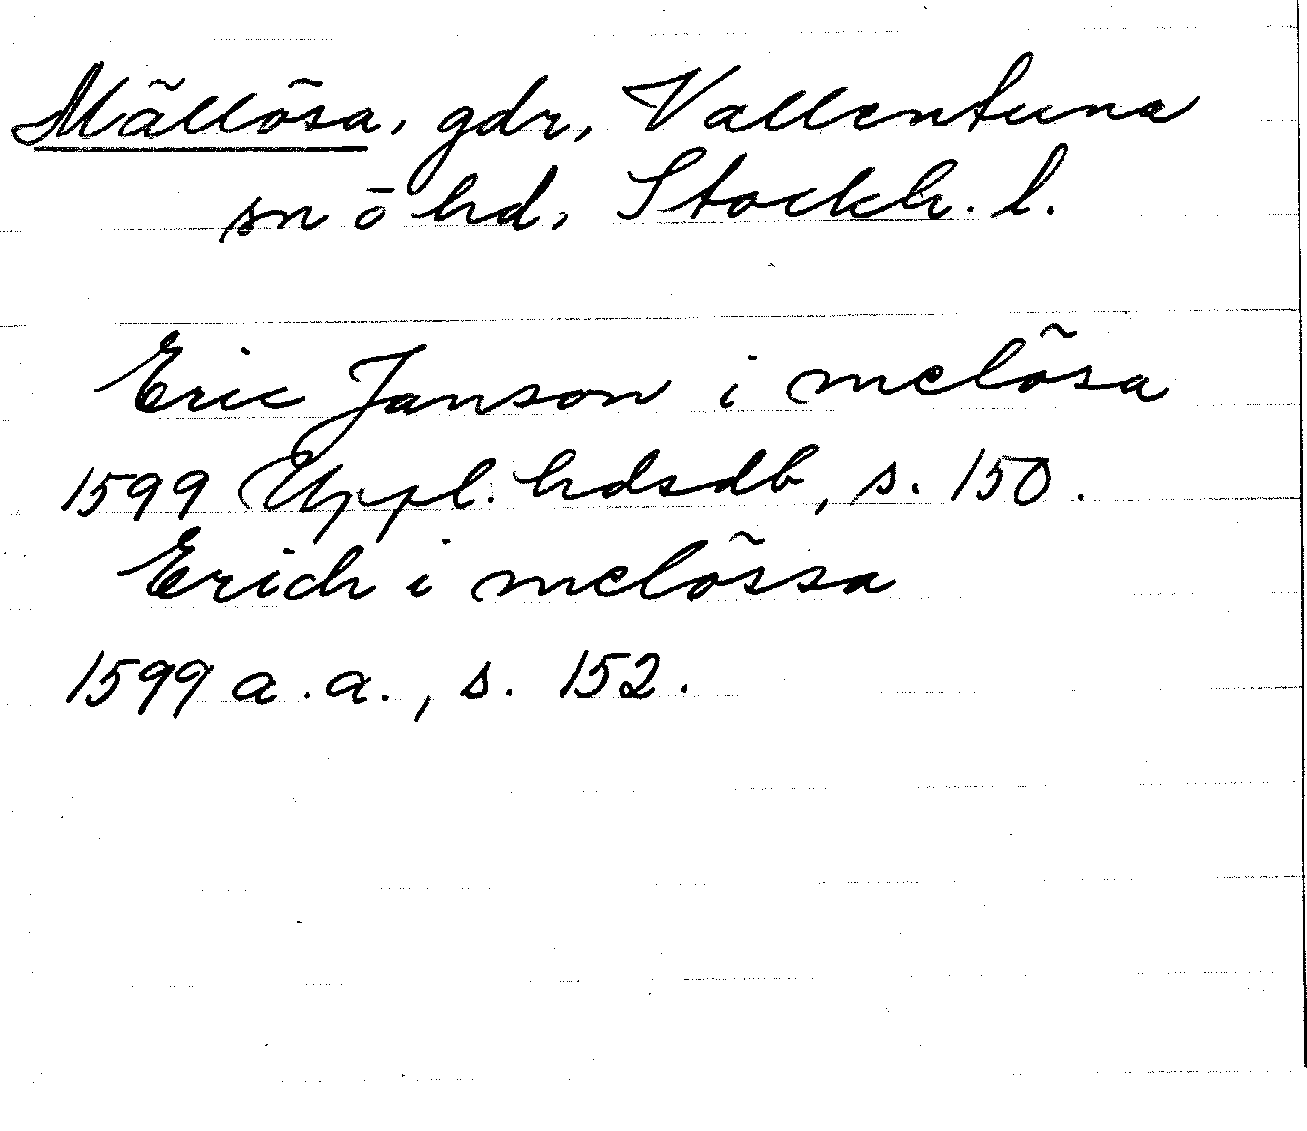 Mällösa, gdr, Vallentuna
sn ō hd, Stockh. l.
Eric Janson i melösa
1599 Uppl. hdsdb, s. 150.
Erich i melössa
1599 a.a., s. 152.